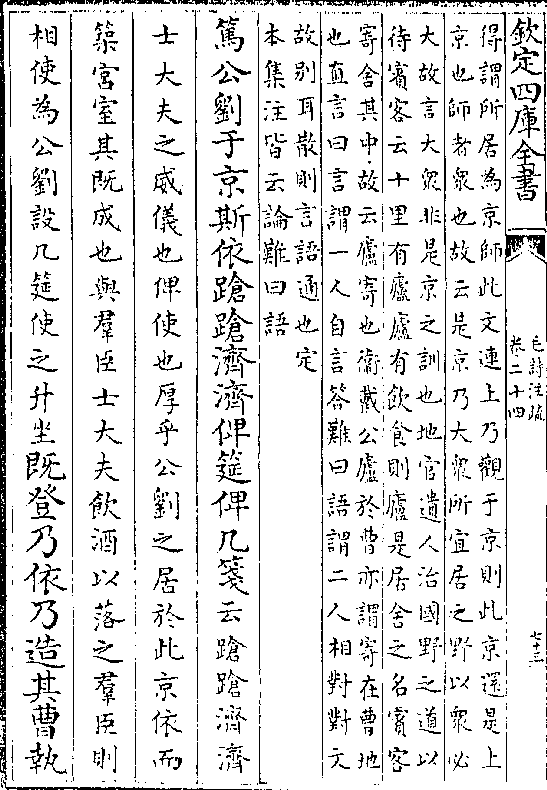 欽定四庫全書
毛詩注疏
卷二十四
七十三
得謂所居為京師此文連上乃觀于京則此京還是上
京也師者衆也故云是京乃大衆所宜居之野以衆必
大故言大衆非是京之訓也地官遺人治國野之道以
待賓客云十里有廬廬有飲食則廬是居舍之名賓客
寄舍其中故云廬寄也衞戴公廬於曹亦謂寄在曹地
也直言曰言謂一人自言答難曰語謂二人相對對文
故别耳散則言語通也定
本集注皆云論難曰語
篤公劉于京斯依蹌蹌濟濟俾筵俾几箋云蹌蹌濟濟
士大夫之威儀也俾使也厚乎公劉之居於此京依而
築宮室其既成也與羣臣士大夫飲酒以落之羣臣則
相使為公劉設几筵使之升坐既登乃依乃造其曹執